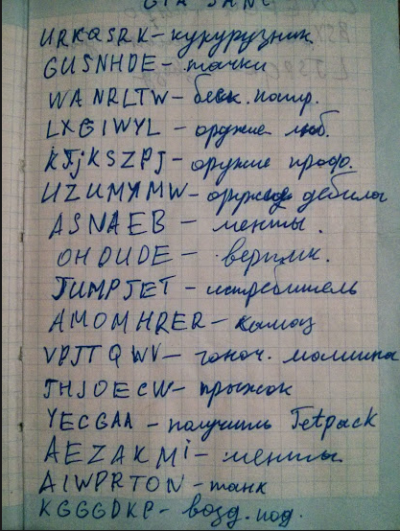 GTA SAN
URKQSRK – кукурузник
GUSNHDE – тачки
WANRLTW – беск. патр.
LXGIWYL – оружие люб.
KJjKSZPJ – оружие проф.
UZUMYMW – оружие дебила
ASNAEB – менты.
OHDUDE – вертик.
JUMPJET – истребитель
AMOMHRER – камаз
VPJTQWV – гоноч. машина
JHJOECW – прыжок
YECGAA – получить Jetpack
AEZAKMi – менты
AIWPRTON – танк
KGGGDKP – возд. под.